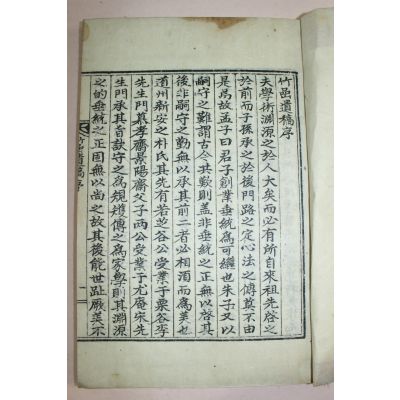 竹凾遺稿序
夫學術淵源之於人大矣而必有所自來祖先啓之
於前而子孫承之於後門路之定心法之傳莫不由
是焉故孟子曰君子創業垂統爲可繼也朱子又以
嗣守之難謂古今共歎則盖非垂統之正無以啓其
後非嗣守之勤無以承其前二者必相須而爲美也
道州新安之朴氏其先有若芝谷公受業于栗谷李
先生門慕孝齋景陽齋父子兩公受業于尤庵宋先
生門承其旨訣守之爲規矩傳之爲家學則其淵源
之的垂統之正固無以尚之故其後能世趾厥美不
遺稿序
一